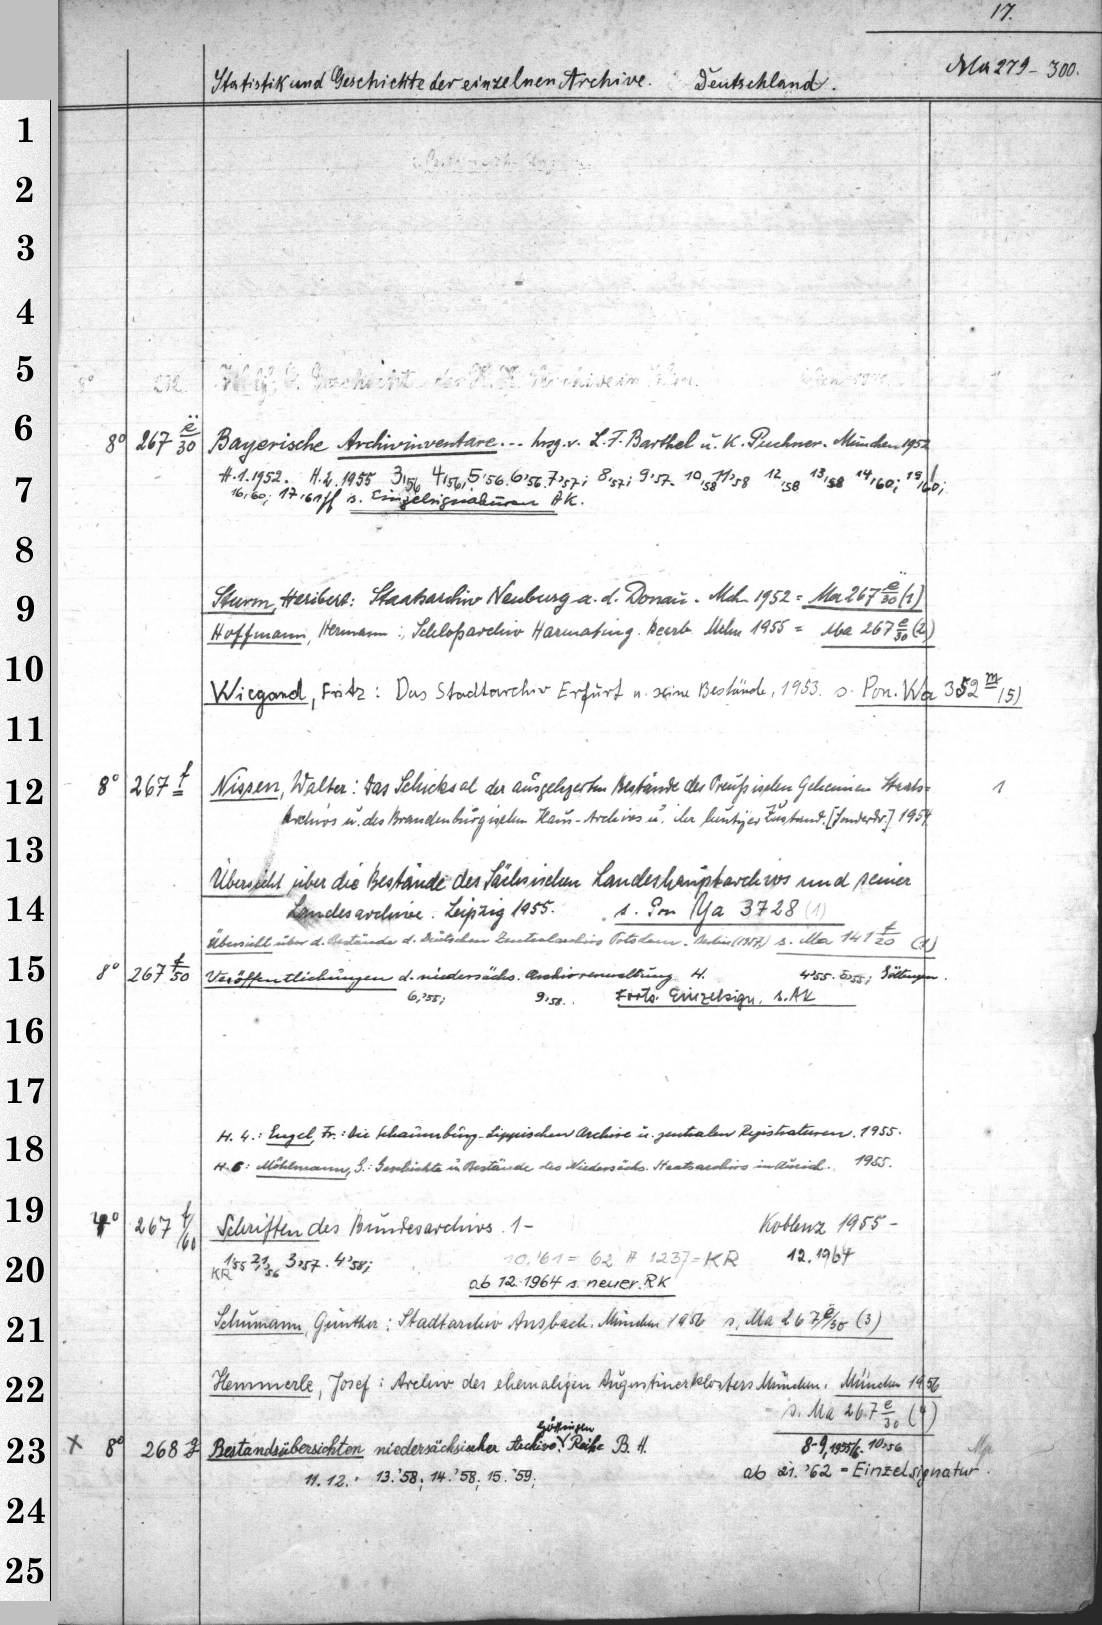 17.
Statistik und Geschichte der einzelnen Archive. Deutschland.
Ma 279-300.
1
2
3
4
5
6
7
8
9
10
11
12
13
14
15
16
17
18
19
20
21
22
23
24
25
8° 267 ë/30 Bayerische Archivinventare... hrsg. v. L. F. Barthel u. K. Puchner. München 1952
H. 1. 1952. H. 2. 1955 3,'56 4,'56, 5,'56. 6,'56. 7,'57; 8,'57; 9,'57. 10,'58 11,'58 12,'58 13,'58 14,'60; 15,'60;
16,'60; 17,'61ff s. Einzelsignaturen AK.
Sturm, Heribert: Staatsarchiv Neuburg a. d. Donau. Mch. 1952 = Ma 267 ë/30 (1)
Hoffmann, Hermann: Schloßarchiv Harmating. bearb. Mchn 1955 = Ma 267 ë/30 (2)
Wiegand, Fritz: Das Stadtarchiv Erfurt u. seine Bestände, 1953. s. Pon. Wa 352 m (5)
8° 267 f Nissen, Walter: Das Schicksal der ausgelagerten Bestände des Preußischen Geheimen Staats= 1
Archivs u. des Brandenburgischen Haus-Archivs u. ihr heutiger Zustand. [Sonderdr.] 1954
Übersicht über die Bestände des Sächsischen Landeshauptarchivs und seiner
Landesarchive. Leipzig 1955. s. Pon Ya 3728 (1)
Übersicht über d. Bestände d. Deutschen Zentralarchivs Potsdam. Berlin (1957) s. Ma 141 f/20 (1)
8° 267 f/50 Veröffentlichungen d. niedersächs. Archivverwaltung H. 4,'55. 5,'55; Göttingen.
6,'55; 9,'58. Forts. Einzelsign. s. AK
H. 4.: Engel, Fr.: Die Schaumburg-Lippischen Archive u. zentralen Registraturen. 1955.
H. 5: Möhlmann, G.: Geschichte u. Bestände des Niedersächs. Staatsarchivs in Aurich. 1955.
4° 267 f/60 Schriften des Bundesarchivs. 1- Koblenz 1955-
1,'55 2,'56 3,'57. 4,'58; 10,'61 = 62 A 1237 = KR 12.1964
KR ab 12.1964 s. neuer RK
Schumann, Günther: Stadtarchiv Ansbach. München 1956 s. Ma 267 ë/30 (3)
Hemmerle, Josef: Archiv des ehemaligen Augustinerklosters München. München 1956
s. Ma 267 ë/30 (4)
x 8° 268 g Bestandsübersichten niedersächsischer Archive. Göttingen Reihe B. H. 8-9, 1955/6. 10,'56
11. 12. 13.'58; 14.'58; 15.'59; ab 21.'62 = Einzelsignatur.